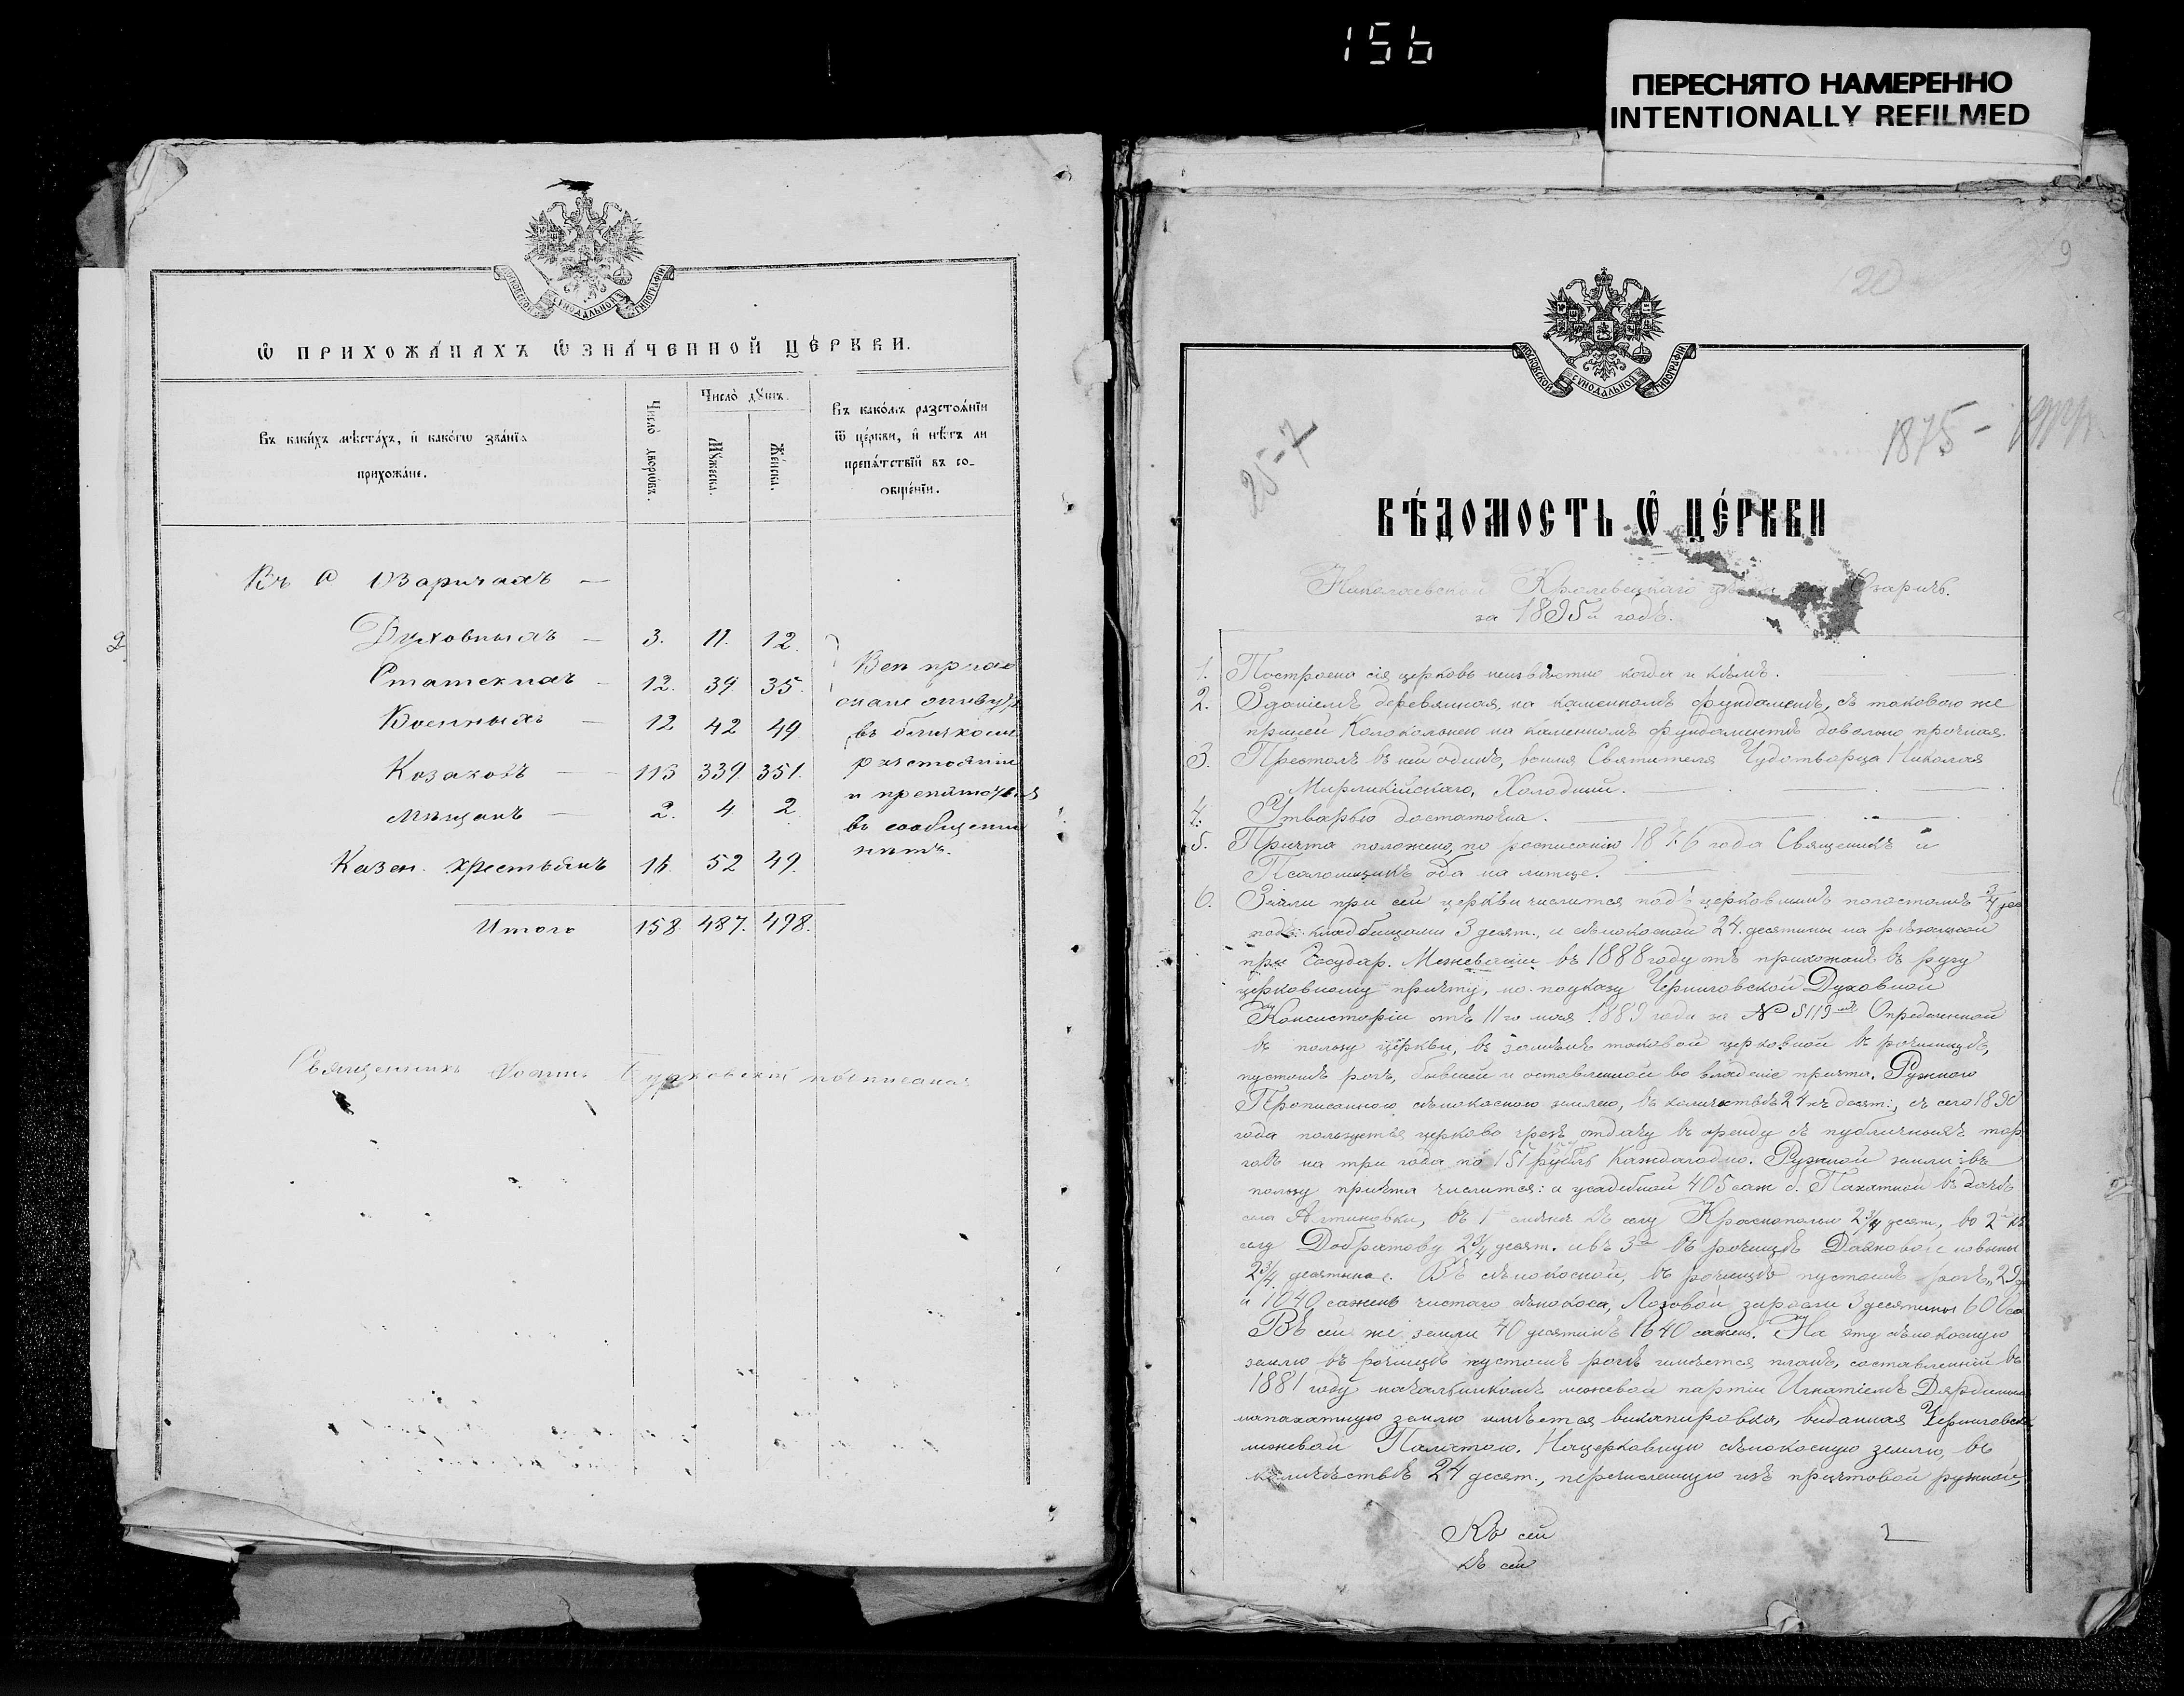 156
ПЕРЕСНЯТО НАМЕРЕННО
INTENTIONALLY REFILMED
МОСКОВСКОЙ СУНОДАЛЬНОЙ ТИПОГРАФІИ
Ѽ ПРИХОЖА́НАХЪ Ѡ҆ЗНА́ЧЕННОЙ ЦЕ́РКВИ.
Въ каки́хъ мѣста́хъ, и҆ како́гѡ зва́нїѧ
прихожа́не.
Число̀ дворѡ́въ.
Число̀ дꙋ́шъ.
Мꙋ́жеска.
Же́нска.
Въ како́мъ разстоѧ́нїи
ѿ це́ркви, и҆ нѣ́тъ ли
препѧ́тствїй въ со-
ѻбще́нїи.
Въ с Озаричахъ —
Духовныхъ — 3. 11. 12.
Статскихъ — 12. 39. 35.
Военныхъ — 12 42 49
Козаковъ — 113 339. 351.
Мѣщанъ — 2. 4 2
Казен. крестьянъ 16 52 49.
Итого 158. 487. 498.
Всѣ прихо
жане живутъ
въ близкомъ
разстояніи
и препятствія
въ сообщеніи
нѣтъ.
Священникъ Іоаннъ
2
9
20
МОСКОВСКОЙ СУНОДАЛЬНОЙ ТИПОГРАФІИ
25-7
1875 -
ВѢ́ДОМОСТЬ Ѽ ЦЕ́РКВИ
Николаевской Кролевецкаго Озаричъ.
за 1895й годъ.
1. Построена сія церковь неизвѣстно когда и кѣмъ.
2. Зданіемъ деревянная, на каменномъ фундаментѣ, съ таковою же
при ней колокольнею на каменномъ фундаментѣ довольно прочная.
3. Престолъ въ ней одинъ, во имя Святителя Чудотворца Николая
Мирликійскаго, Холодный.
4. Утварью достаточна.
5. Причта положено, по росписанію 1876 года Священникъ и
Псаломщикъ оба на лице.
6. Земли при сей церкви числится подъ церковнымъ погостомъ 3/4 дес
подъ кладбищами 3 десят., и сѣнокосной 24 десятины
при Государ. Межеваніи въ 1888 году отъ прихожанъ въ ругу
церковному причту, но по указу Черниговской Духовной
Консисторіи отъ 11го мая 1889 года за № 5119 Опредѣленной
въ пользу церкви, въ замѣнъ таковой церковной въ рочищѣ,
пустошѣ рогъ, бывшей и оставленной во владѣніе причта. Ружною
Прописанною сѣнокосною землею, въ количествѣ 24хъ десят., съ сего 1890
года пользуется церковь чрезъ отдачу въ аренду съ публичныхъ тор
говъ на три года по 151 рублю каждагодно. Ружной земли въ
пользу причта числится: а усадебной 405 саж б. Пахатной въ дачѣ
села Алтыновки, въ 1 смѣнѣ къ селу Краснополью 2 3/4 десят., во 2 къ
селу Добротову 2 3/4 десят. и въ 3й въ рочищѣ
2 3/4 десятины. сѣнокосной, въ рочищѣ пустошѣ рогъ, 29
и 1040 сажень чистаго сѣнокоса, Лозовой заросли 3 десятины 600
Въ сей же земли 40 десятинъ 1640 сажень. На эту сѣнокосную
землю въ рочищѣ пустошѣ рогъ имѣется планъ, составленный въ
1881 году начальникомъ межевой партіи Игнатіемъ
на пахатную землю имѣется викопировка, виданная Черниговск
межевой Палатою. На церковную сѣнокосную землю, въ
количествѣ 24 десят., перечисленную изъ причтовой ружной,
Къ сей
Къ сей
2